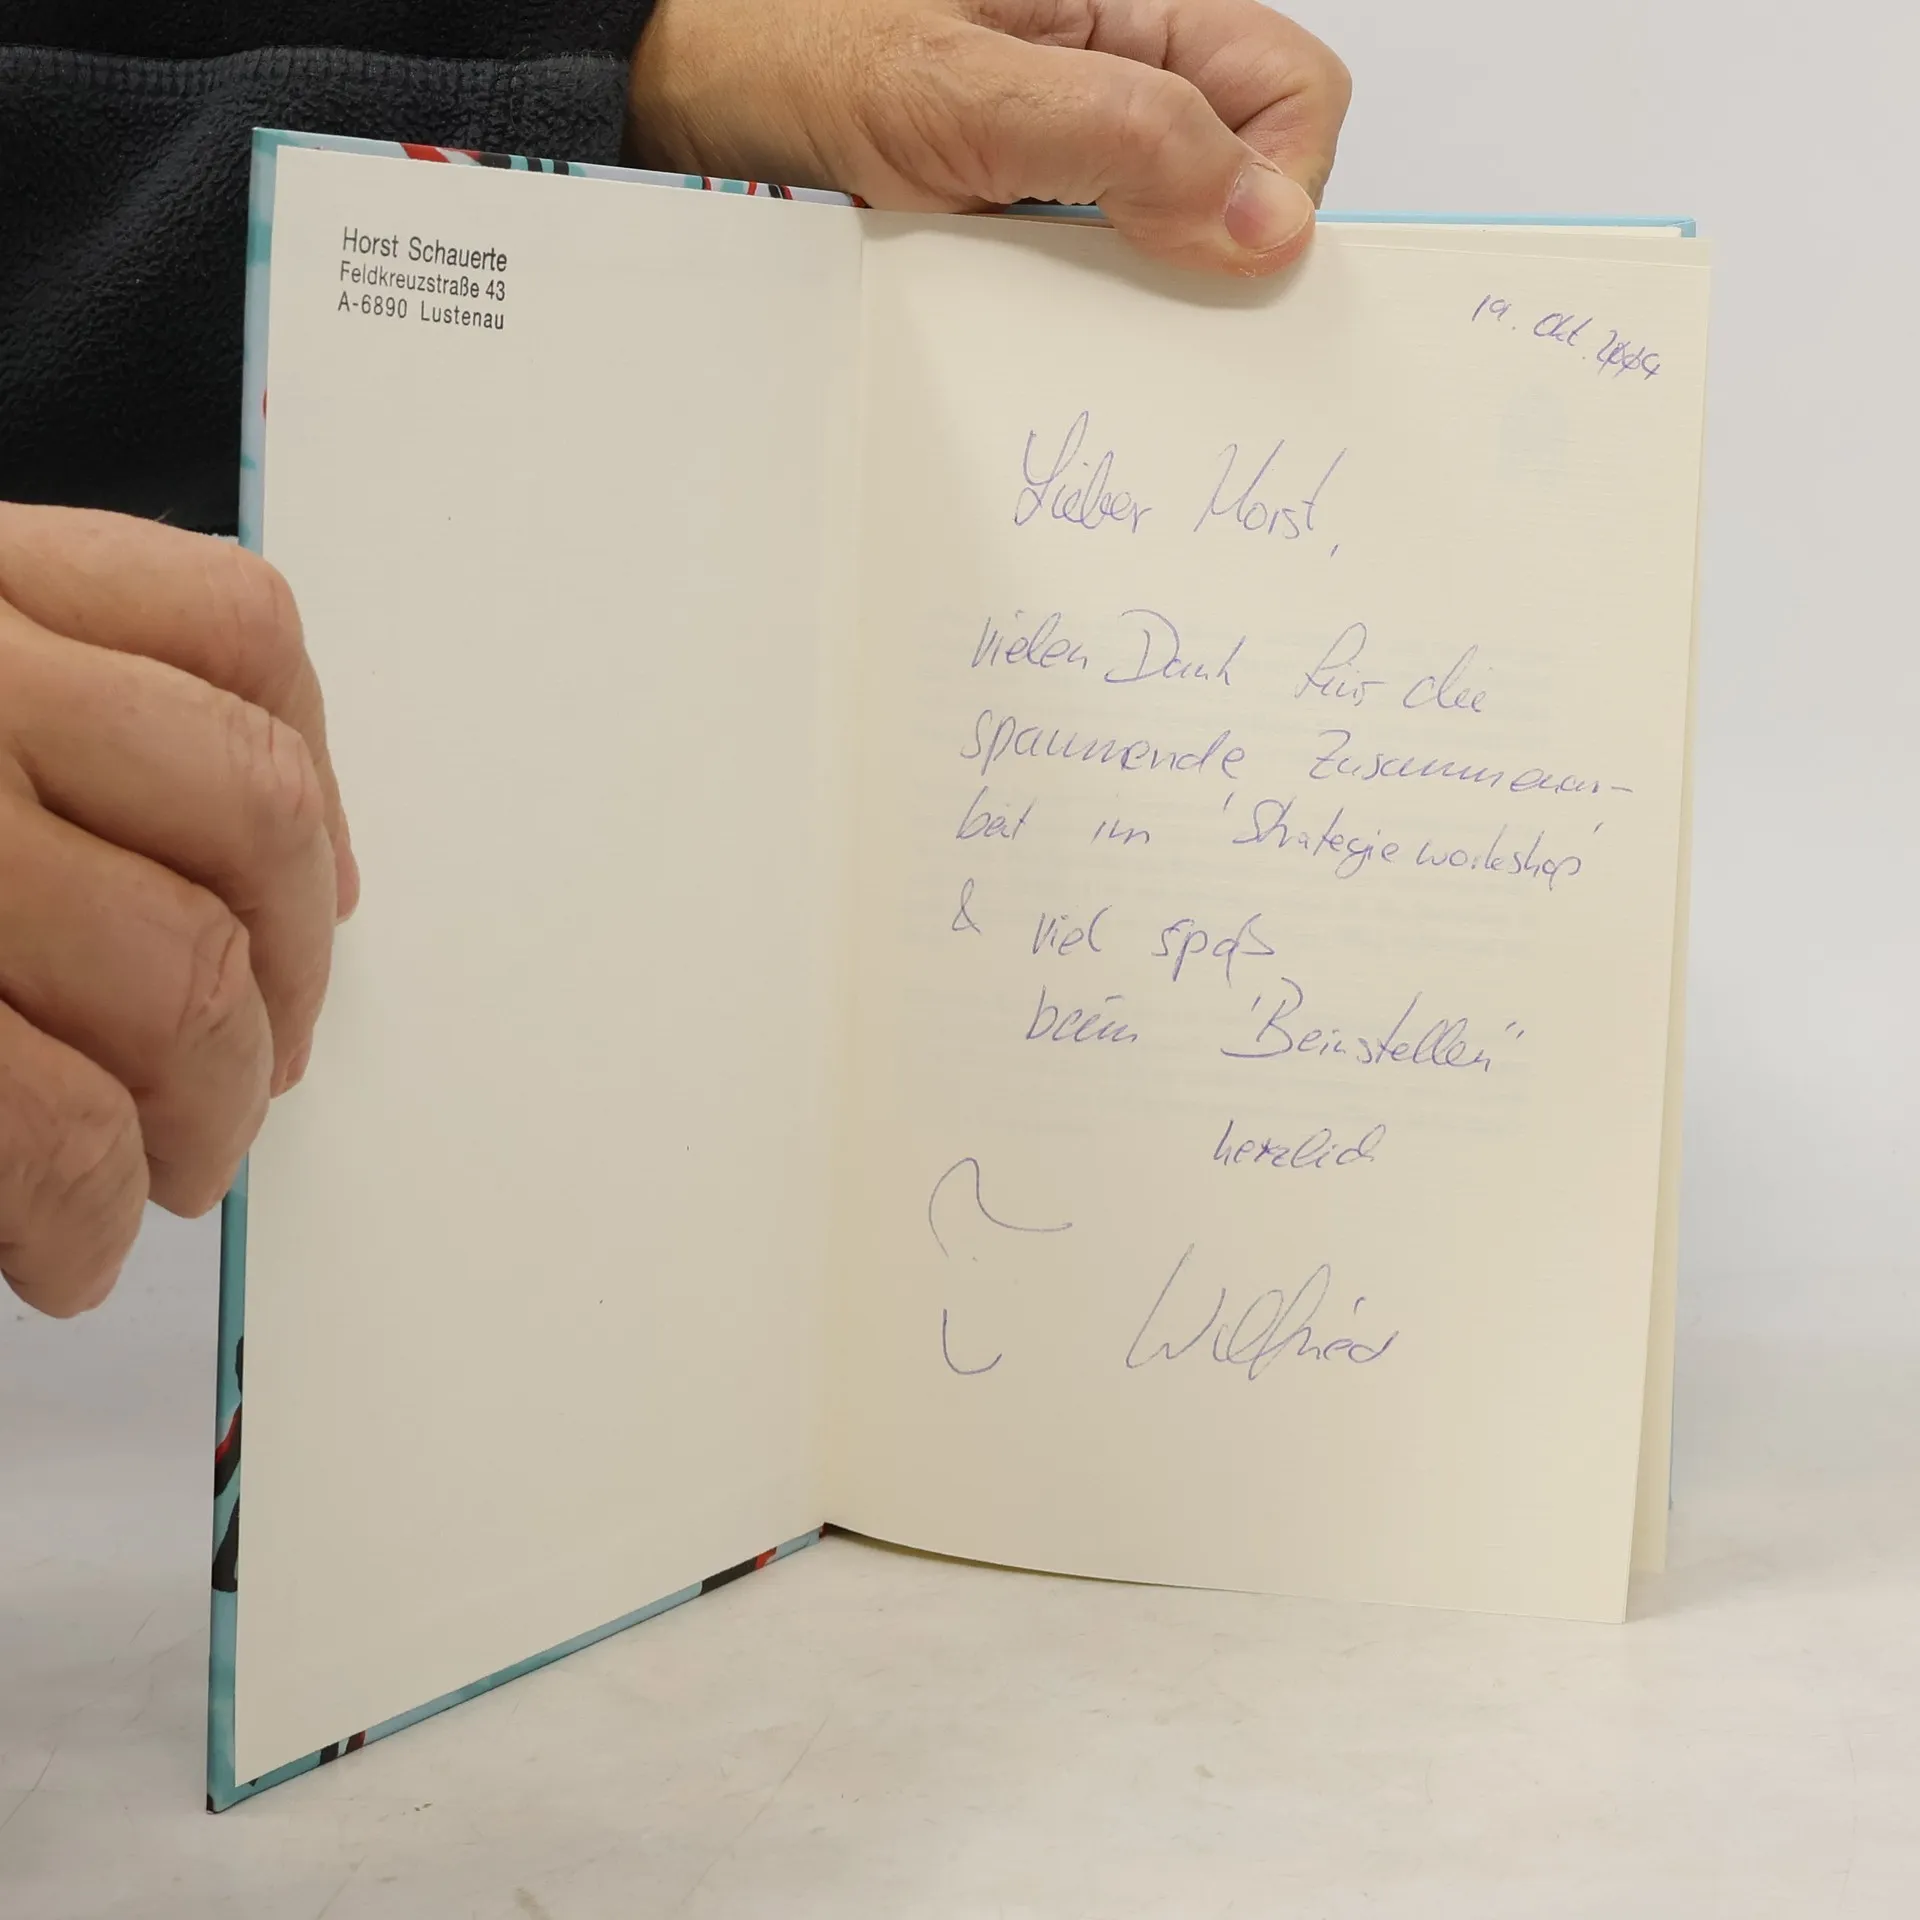 Horst Schauerte
Feldkreuzstraße 43
A-6890 Lustenau
19. Okt.
Lieber Horst,
vielen Dank für die
spannende Zusammenar-
beit im 'Strategieworkshop'
& viel spaß
beim "Beinstellen"
herzlich
Wilfried